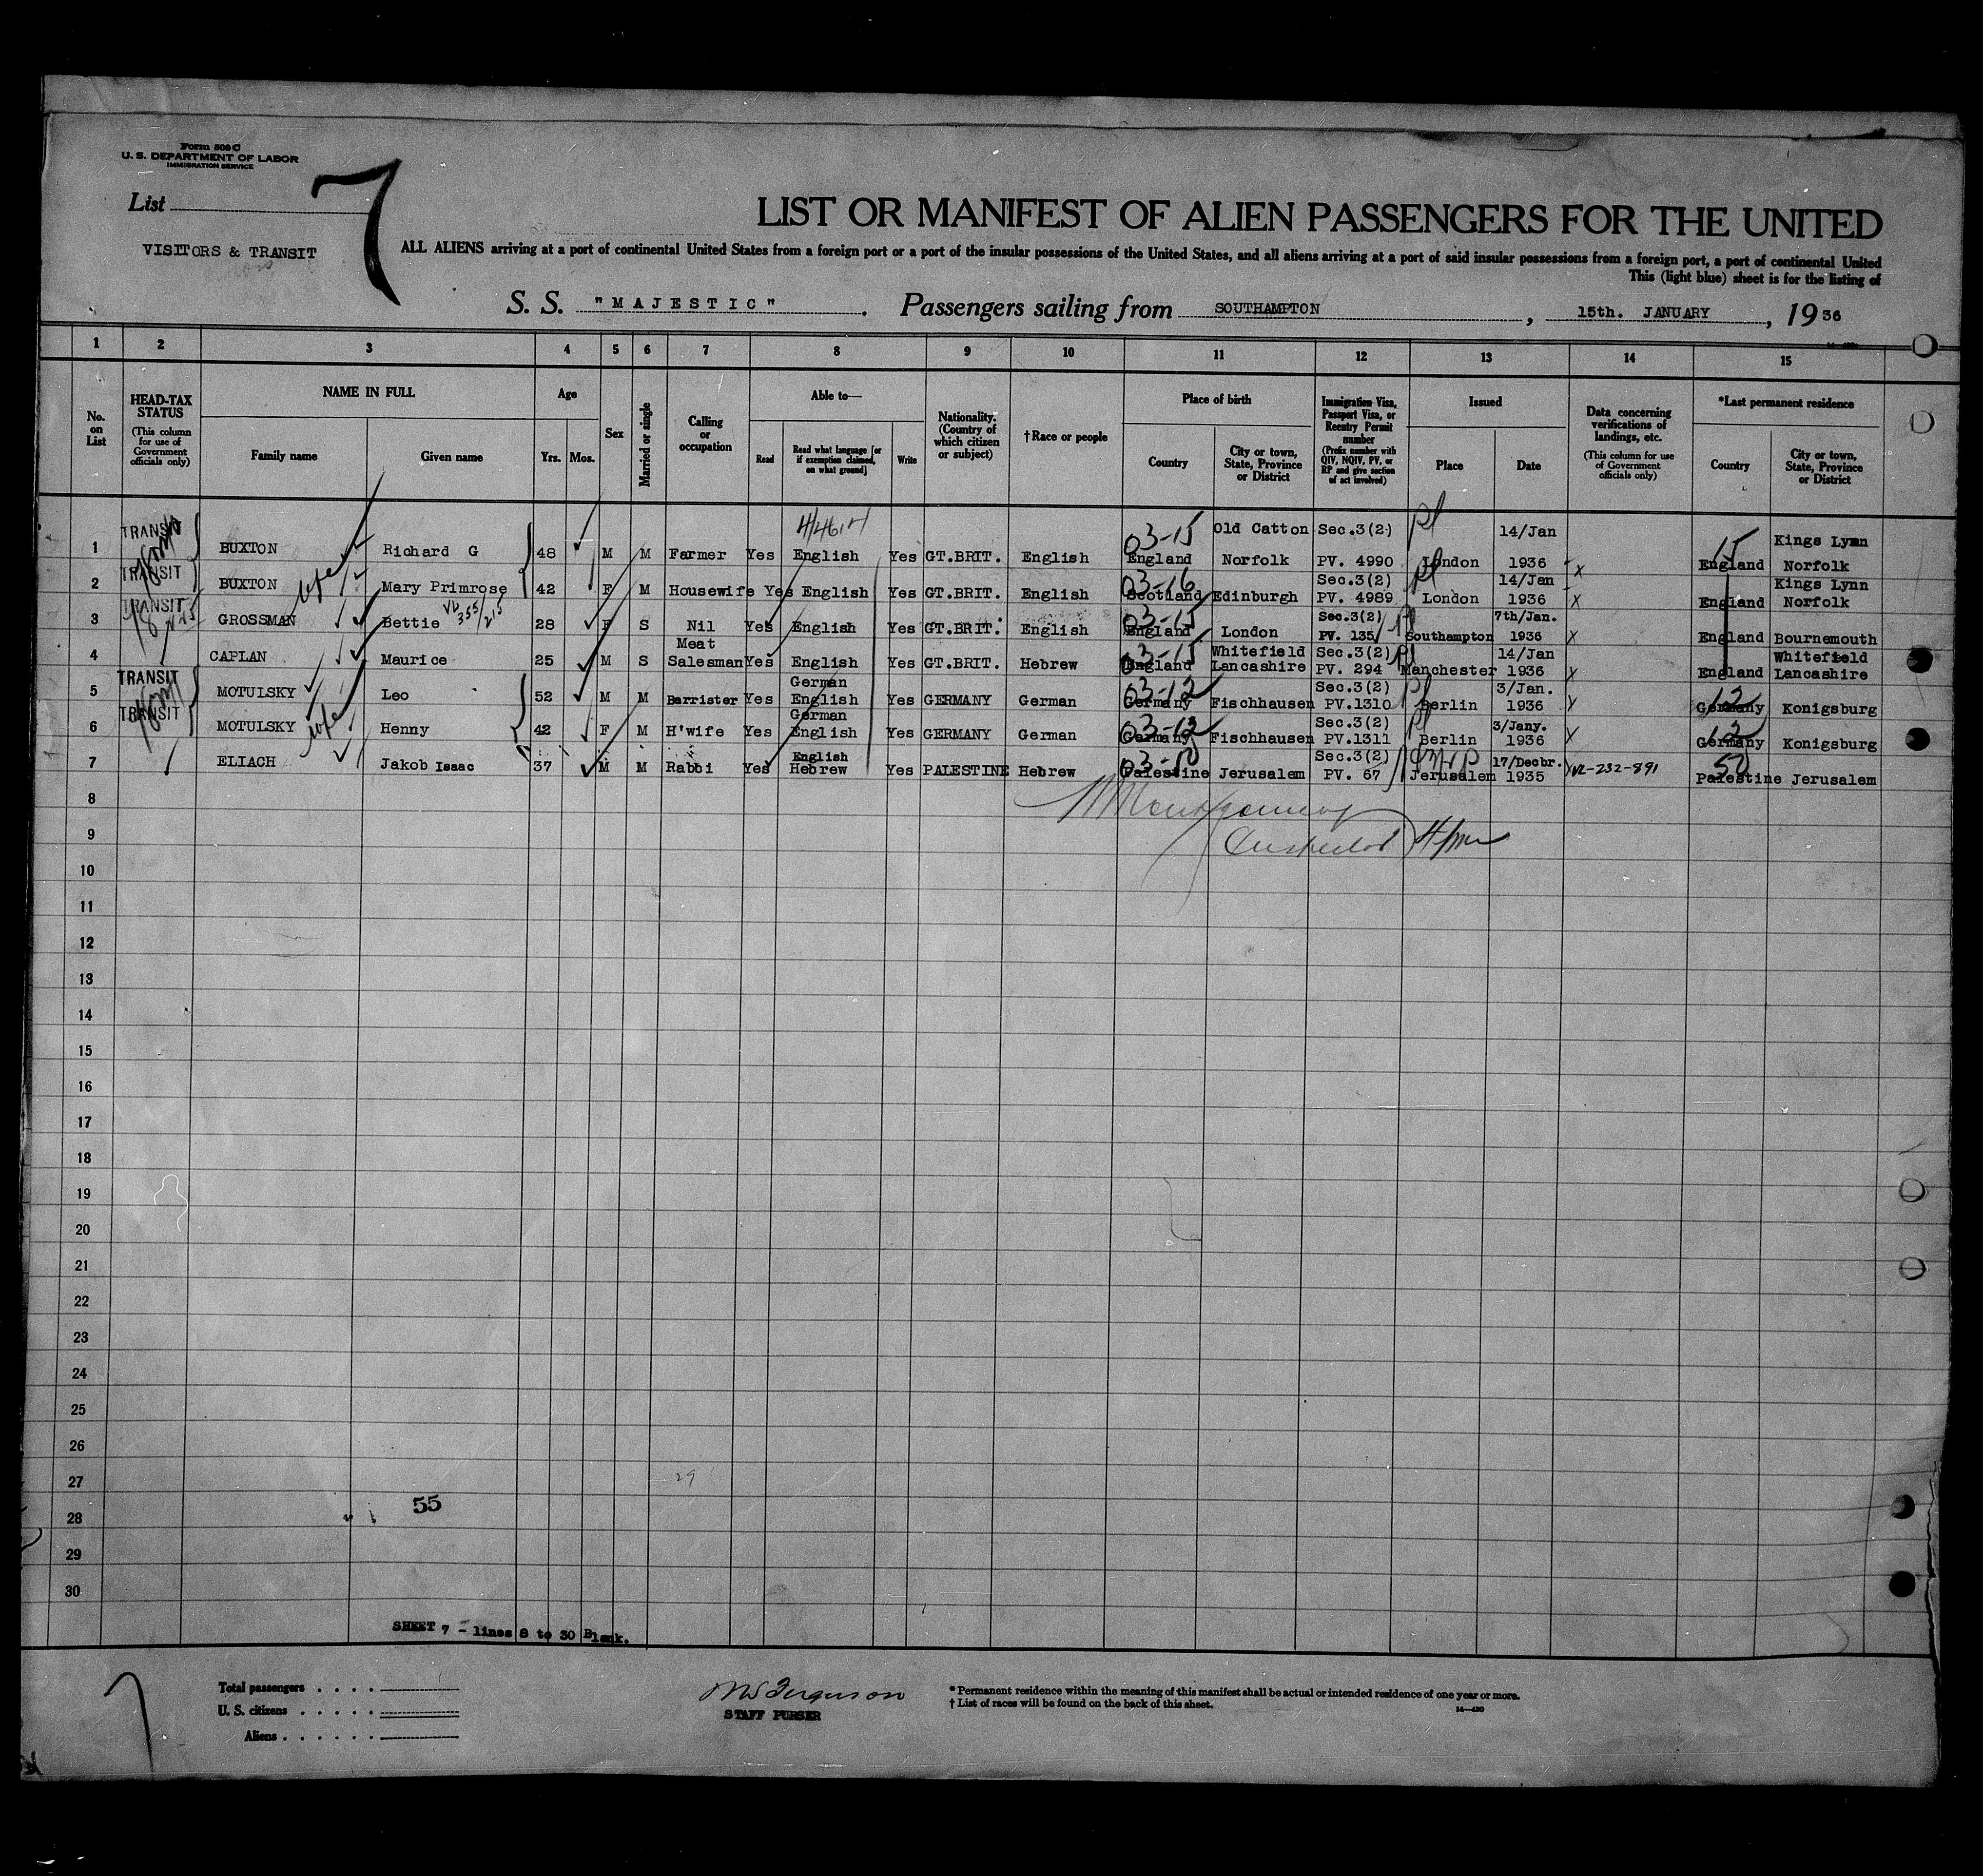 Form 500 C
U. S. DEPARTMENT OF LABOR
IMMIGRATION SERVICE
List 7
VISITORS & TRANSIT
LIST OR MANIFEST OF ALIEN PASSENGERS FOR THE UNITED
ALL ALIENS arriving at a port of continental United States from a foreign port or a port of the insular possessions of the United States, and all aliens arriving at a port of said insular possessions from a foreign port, a port of continental United
This (light blue) sheet is for the listing of
S. S. "MAJESTIC". Passengers sailing from SOUTHAMPTON, 15th. JANUARY, 1936
1 2 3 4 5 6 7 8 9 10 11 12 13 14 15
No. on List
HEAD-TAX STATUS
(This column for use of Government officials only)
NAME IN FULL
Family name
Given name
Age
Yrs. Mos.
Sex
Married or single
Calling or occupation
Able to—
Read
Read what language [or if exemption claimed, on what ground]
Write
Nationality. (Country of which citizen or subject)
†Race or people
Place of birth
Country
City or town, State, Province or District
Immigration Visa, Passport Visa, or Reentry Permit number
(Prefix number with QIV, NQIV, PV, or RP and give section of act involved)
Issued
Place
Date
Data concerning verifications of landings, etc.
(This column for use of Government officials only)
*Last permanent residence
Country
City or town, State, Province or District
1 TRANSIT BUXTON Richard G 48 M M Farmer Yes English Yes GT.BRIT. English 03-15 England Old Catton Norfolk Sec.3(2) PV. 4990 London 14/Jan 1936 x 15 England Kings Lynn Norfolk
2 TRANSIT BUXTON wife Mary Primrose 42 F M Housewife Yes English Yes GT.BRIT. English 03-16 Scotland Edinburgh Sec.3(2) PV. 4989 London 14/Jan 1936 x England Kings Lynn Norfolk
3 TRANSIT GROSSMAN Bettie 28 F S Nil Yes English Yes GT.BRIT. English 03-15 England London Sec.3(2) PV. 135 Southampton 7th/Jan. 1936 x England Bournemouth
4 CAPLAN Maurice 25 M S Meat Salesman Yes English Yes GT.BRIT. Hebrew 03-15 England Whitefield Lancashire Sec.3(2) PV. 294 Manchester 14/Jan 1936 x England Whitefield Lancashire
5 TRANSIT MOTULSKY Leo 52 M M Barrister Yes German English Yes GERMANY German 03-12 Germany Fischhausen Sec.3(2) PV.1310 Berlin 3/Jan. 1936 x 12 Germany Konigsburg
6 TRANSIT MOTULSKY wife Henny 42 F M H'wife Yes German English Yes GERMANY German 03-12 Germany Fischhausen Sec.3(2) PV.1311 Berlin 3/Jany. 1936 x 12 Germany Konigsburg
7 ELIACH Jakob Isaac 37 M M Rabbi Yes English Hebrew Yes PALESTINE Hebrew 03-50 Palestine Jerusalem Sec.3(2) PV. 67 Jerusalem 17/Decbr. 1935 50 Palestine Jerusalem
8
9
10
11
12
13
14
15
16
17
18
19
20
21
22
23
24
25
26
27 29
28 55
29
30
SHEET 7 - lines 8 to 30 Blank.
Total passengers
U. S. citizens
Aliens
STAFF PURSER
* Permanent residence within the meaning of this manifest shall be actual or intended residence of one year or more.
† List of races will be found on the back of this sheet.